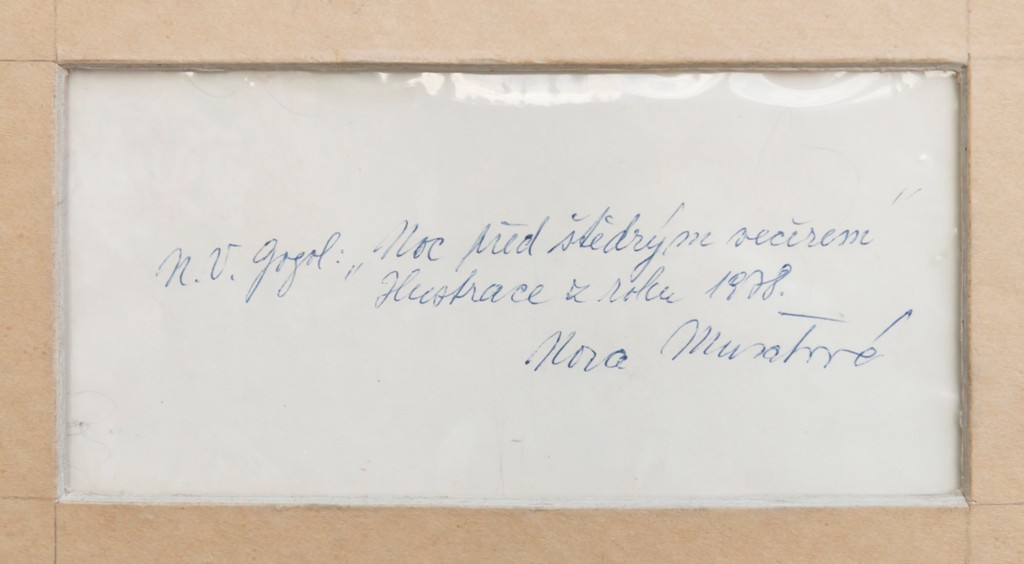 N. V. Gogol: „Noc před štědrým večírem"
Ilustrace z roku 1978.
Nora Musatová